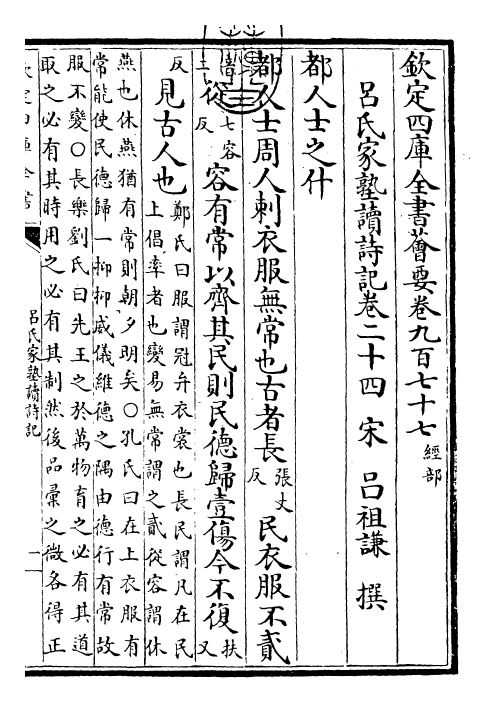 欽定四庫全書薈要卷九百七十七 經部
呂氏家塾讀詩記卷二十四 宋 呂祖謙 撰
都人士之什
都人士周人刺衣服無常也古者長 張丈反 民衣服不貳
從 七容反 容有常以齊其民則民德歸壹傷今不復 扶又
反 見古人也 鄭氏曰服謂冠弁衣裳也長民謂凡在民
上倡率者也變易無常謂之貳從容謂休
燕也休燕猶有常則朝夕明矣○孔氏曰在上衣服有
常能使民德歸一抑抑威儀維德之隅由德行有常故
服不變○長樂劉氏曰先王之於萬物育之必有其道
取之必有其時用之必有其制然後品彙之微各得正
欽定四庫全書
呂氏家塾讀詩記
一